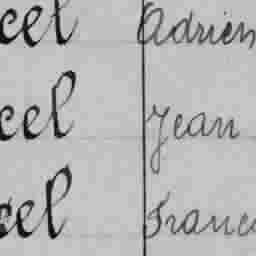 cel Adrien
cel Jean
cel Franc